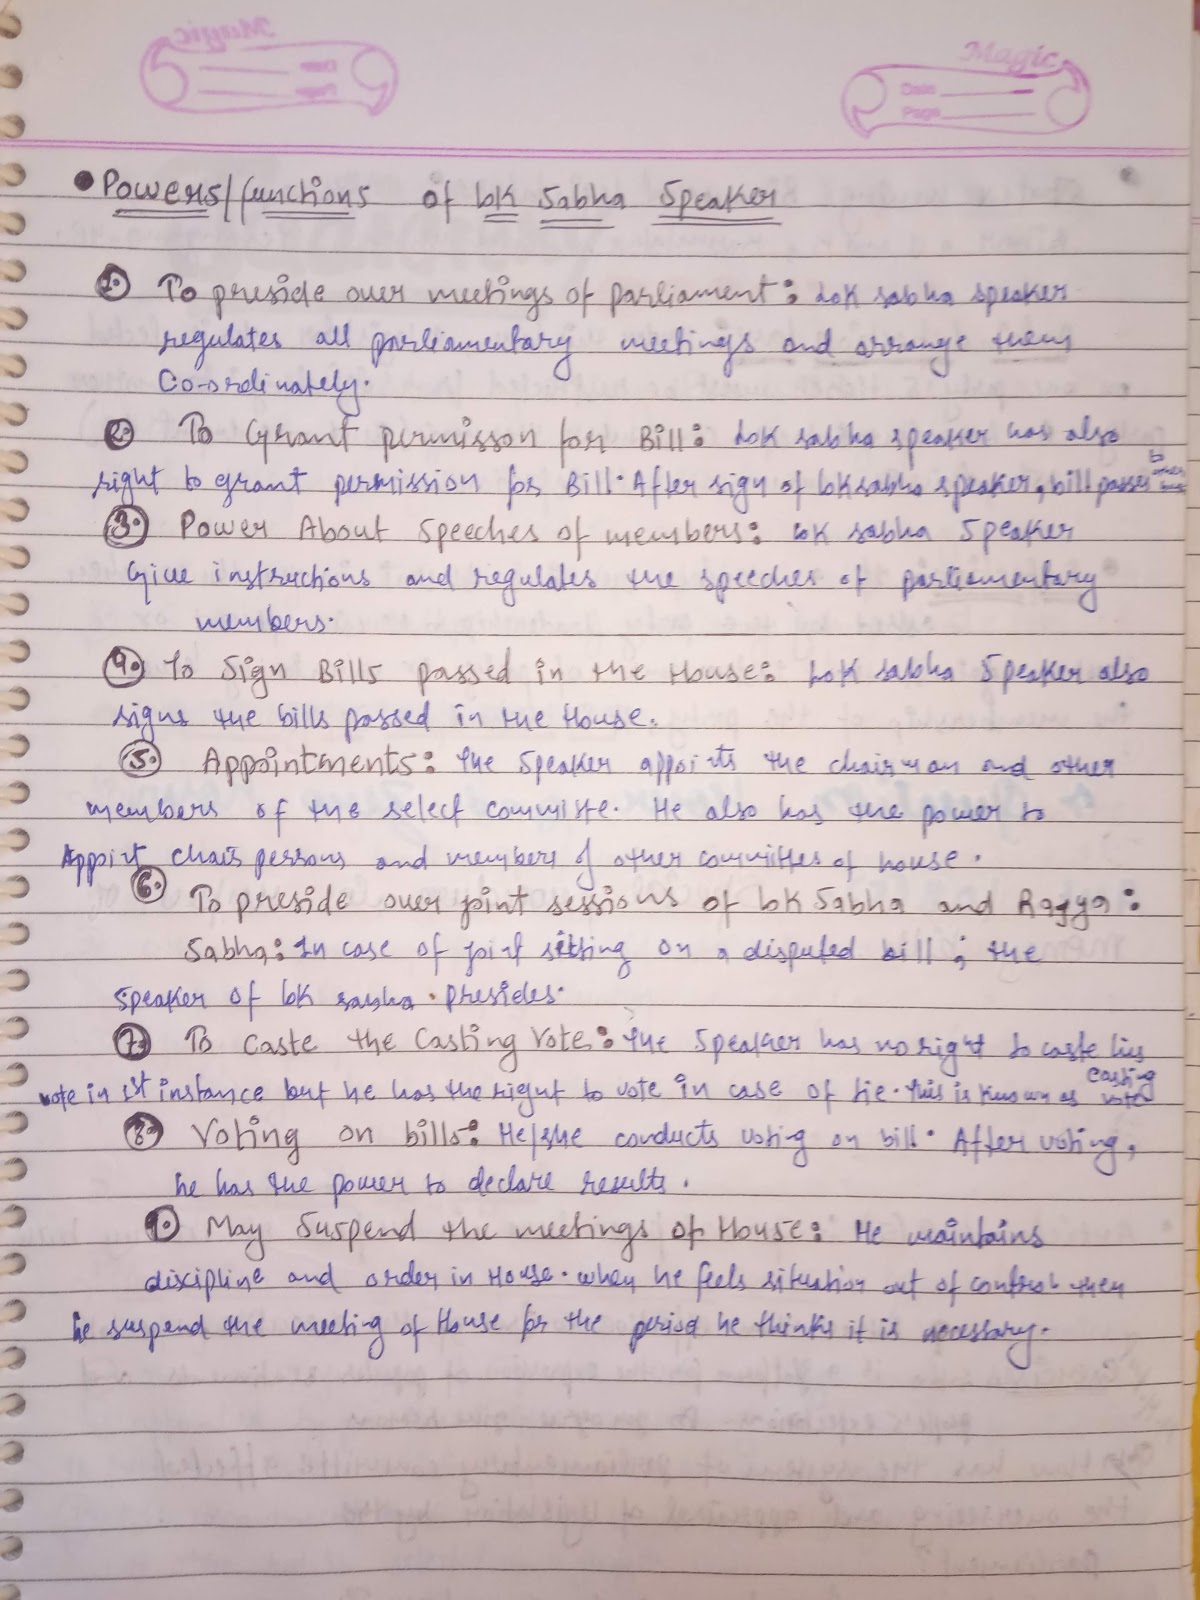 Magic
Date
Page
• Powers/functions of lok Sabha Speaker
1. To preside over meetings of parliament: Lok sabha speaker
regulates all parliamentary meetings and arrange them
Co-ordinately.
2. To Grant permisson for Bill: Lok sabha speaker has also
right to grant permission for Bill. After sign of loksabha speaker, bill passes to other
3. Power About Speeches of members: lok sabha Speaker
Give instructions and regulates the speeches of parliamentary
members.
4. To Sign Bills passed in the House: Lok sabha Speaker also
signs the bills passed in the House.
5. Appointments: The Speaker appoints the chairman and other
members of the select committe. He also has the power to
Appoint chairs persons and members of other committes of house.
6. To preside over joint sessions of lok Sabha and Ragya:
Sabha: In case of joint sitting on a disputed bill; the
Speaker of lok sabha presides.
7. To Caste the Casting Vote: The Speaker has no right to caste his
vote in 1st instance but he has the right to vote in case of tie. This is known as casting vote
8. Voting on bills: He/she conducts voting on bill. After voting,
he has the power to declare results.
9. May Suspend the meetings of House: He maintains
discipline and order in House. when he feels situation out of control then
he suspend the meeting of House for the period he thinks it is necessary.